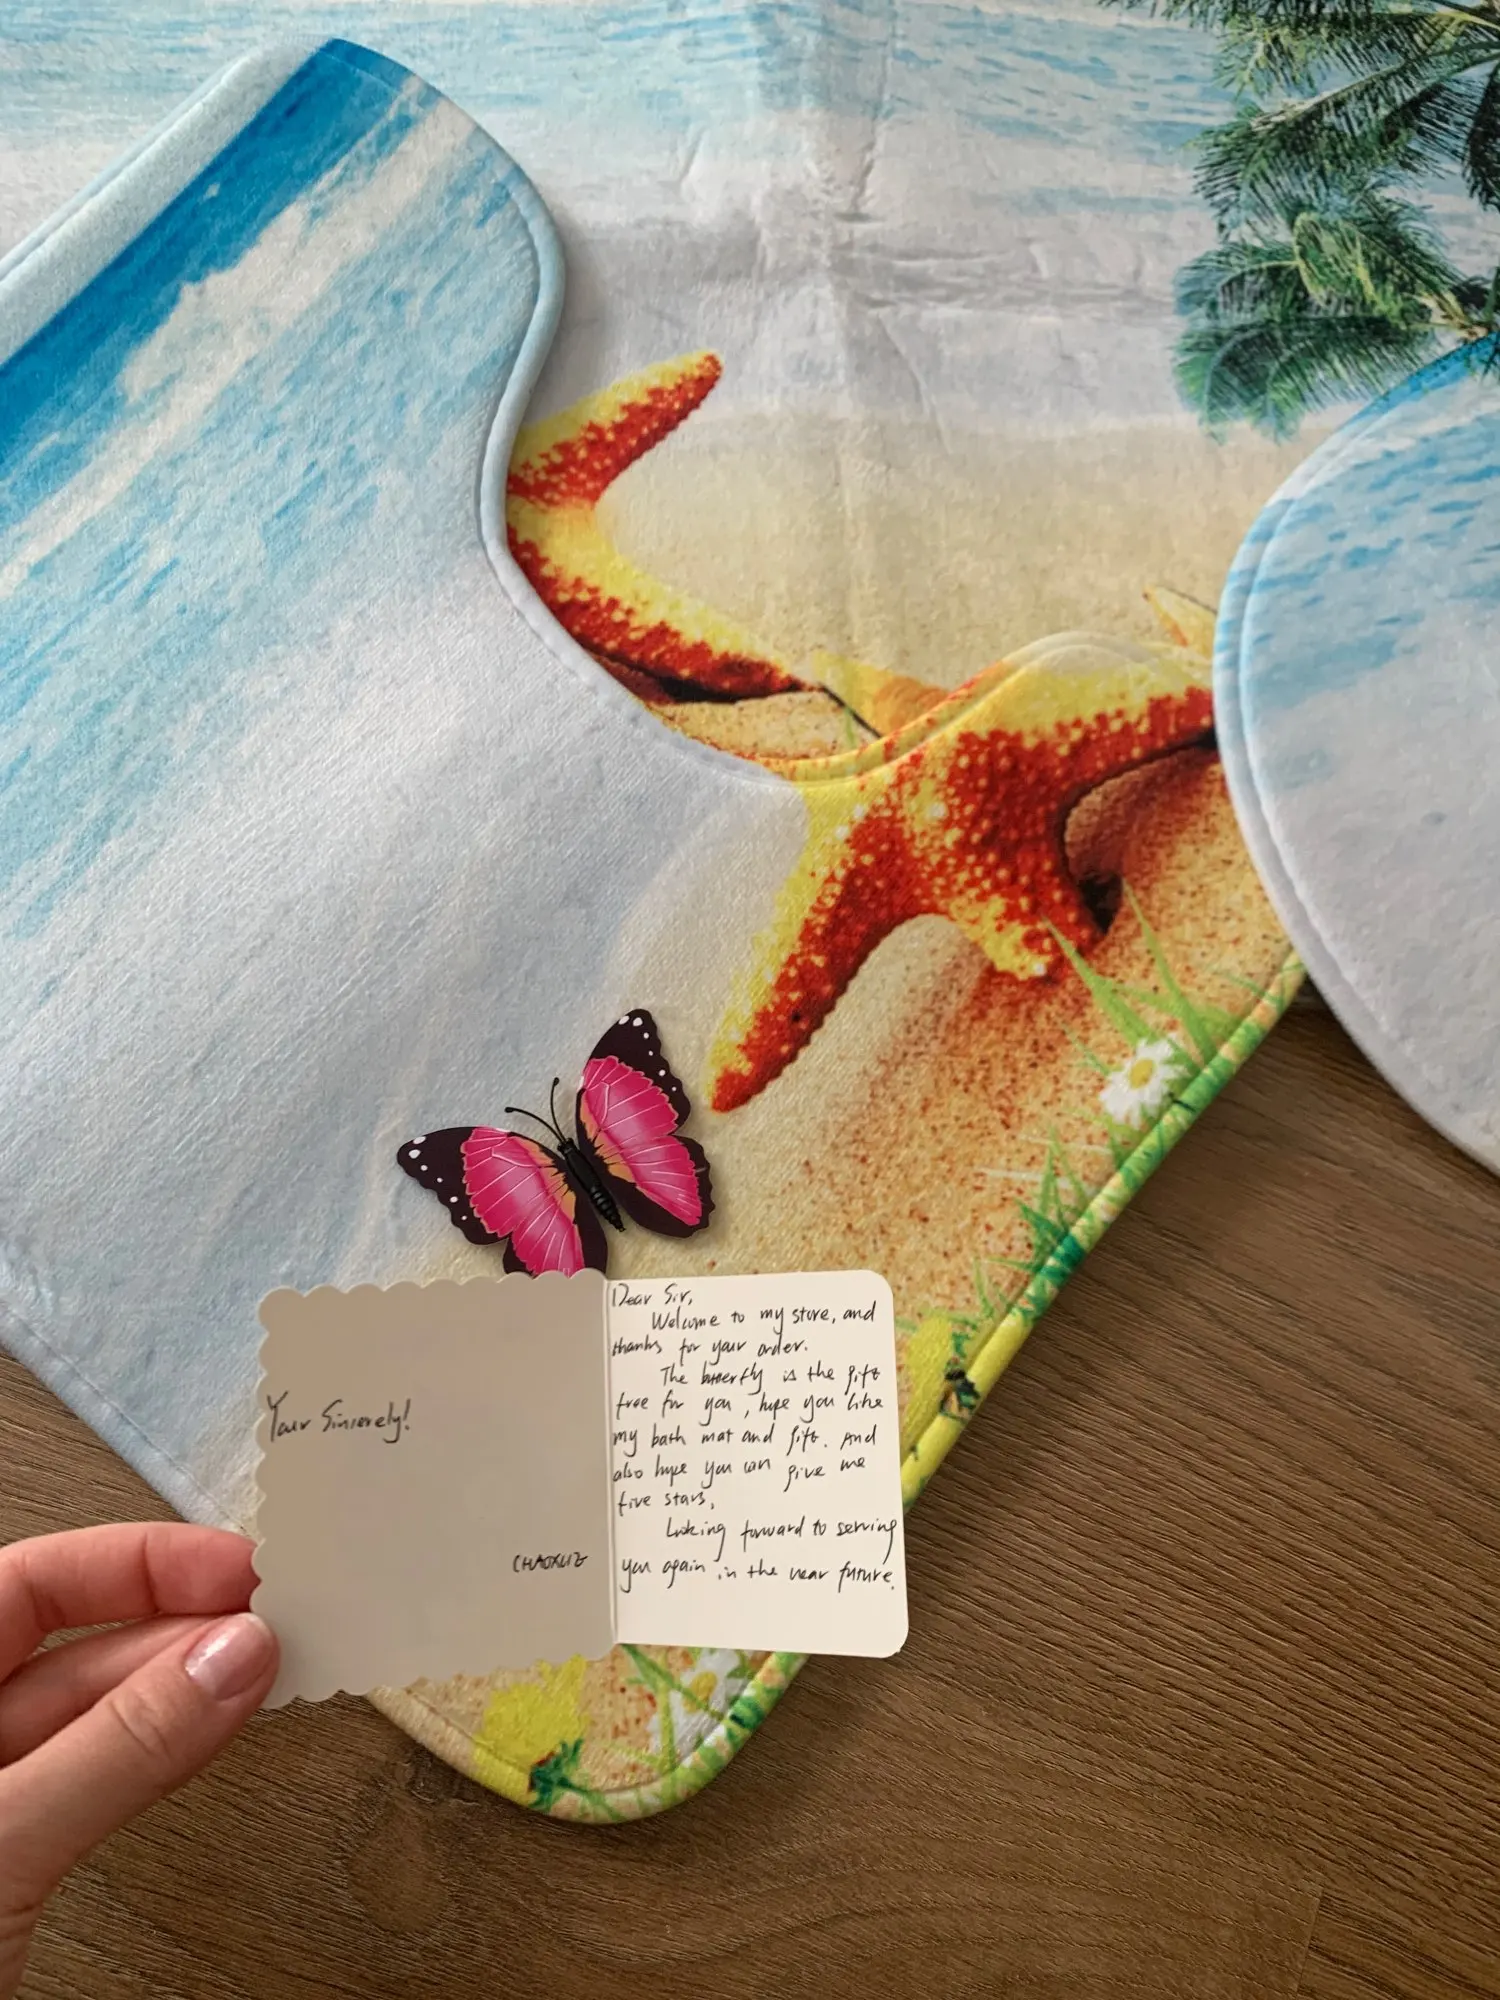 Dear Sir,
Welcome to my store, and
thanks for your order.
The butterfly is the gift
free for you, hope you like
my bath mat and gift. And
also hope you can give me
five stars,
Looking forward to serving
you again in the near future.
Your Sincerely!